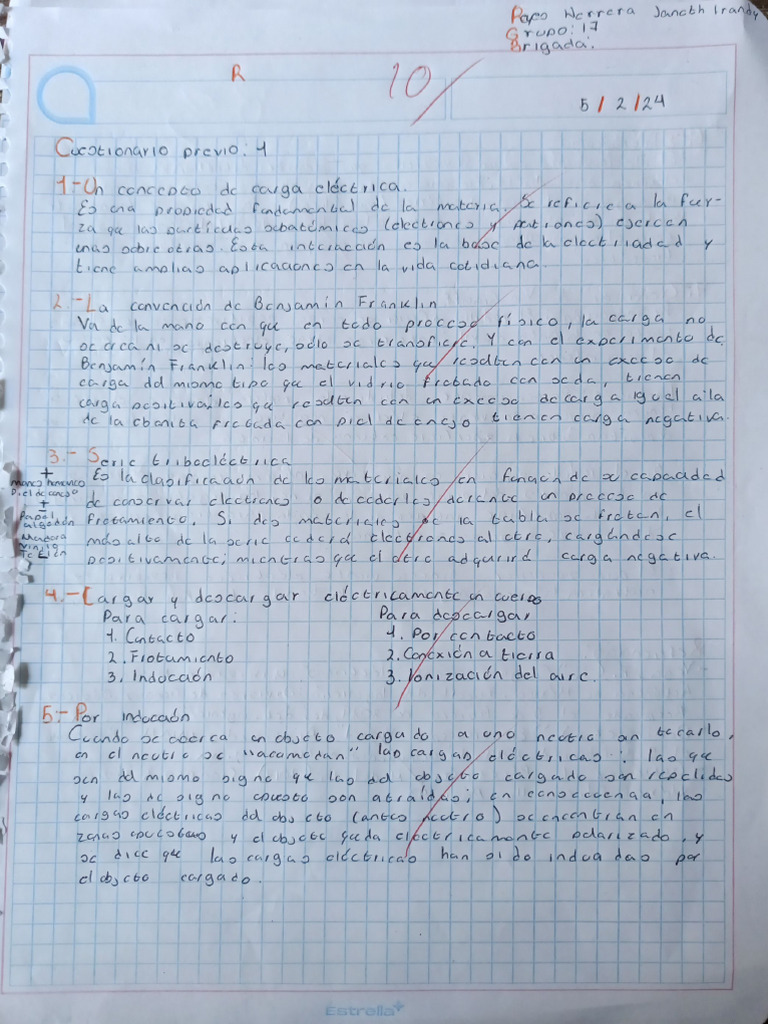 Paco Herrera Janeth Irandy
Grupo: 17
Brigada:
R
10
5 / 2 / 24
Cuestionario previo: 1
1.- Un concepto de carga eléctrica.
Es una propiedad fundamental de la materia. Se refiere a la fuer-
za que las partículas subatómicas (electrones y protones) ejercen
unas sobre otras. Esta interacción es la base de la electricidad y
tiene amplias aplicaciones en la vida cotidiana.
2.- La convención de Benjamín Franklin
Va de la mano con que en todo proceso físico, la carga no
se crea ni se destruye, sólo se transfiere. Y con el experimento de
Benjamín Franklin: los materiales que resulten con un exceso de
carga del mismo tipo que el vidrio frotado con seda, tienen
carga positiva; los que resulten con un exceso de carga igual a la
de la ebonita frotada con piel de conejo tienen carga negativa.
3.- Serie triboeléctrica
Es la clasificación de los materiales en función de su capacidad
de conservar electrones o de cederlos durante un proceso de
frotamiento. Si dos materiales de la tabla se frotan, el
más alto de la serie cederá electrones al otro, cargándose
positivamente; mientras que el otro adquirirá carga negativa.
+
manos humanas
Piel de conejo
+
-
Papel
algodón
Madera
Vinilo
Teflón
4.- Cargar y descargar eléctricamente un cuerpo
Para cargar: Para descargar
1. Contacto 1. Por contacto
2. Frotamiento 2. Conexión a tierra
3. Inducción 3. Ionización del aire.
5.- Por inducción
Cuando se acerca un objeto cargado a uno neutro sin tocarlo,
en el neutro se "acomodan" las cargas eléctricas: las que
son del mismo signo que las del objeto cargado son repelidas
y las de signo opuesto son atraídas; en consecuencia, las
cargas eléctricas del objeto (antes neutro) se encuentran en
zonas opuestas y el objeto queda eléctricamente polarizado, y
se dice que las cargas eléctricas han sido inducidas por
el objeto cargado.
Estrella